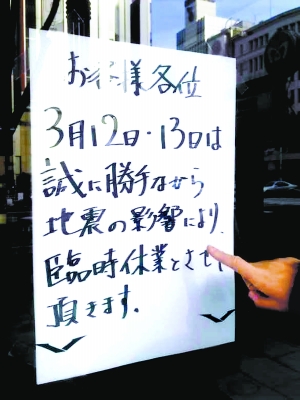 お客様各位
3月12日・13日は
誠に勝手ながら
地震の影響により、
臨時休業とさせて
頂きます.